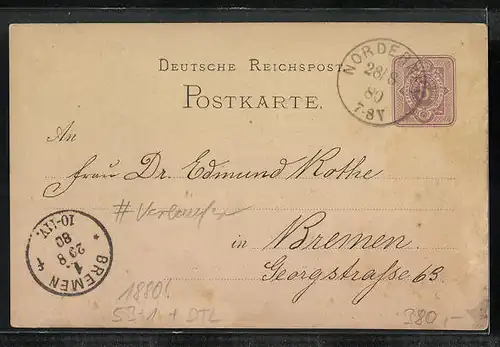 DEUTSCHE REICHSPOST
POSTKARTE.
NORDE
28/8
80
7-8V
An
Frau Dr. Edmund Rothe
#
in Bremen.
Georgstraße 63.
BREMEN
1.
29 8
80
10-11V.
1880!
+ DTL
380,-